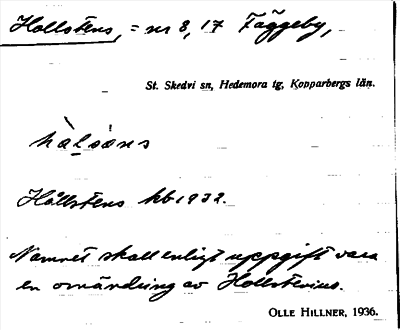 Hollstens, = nr 8, 17 Fäggeby,
St. Skedvi sn, Hedemora tg, Kopparbergs län.
hàlsǝns
Hållstens kb 1932.
Namnet skall enligt uppgift vara
en omändring av Hollstenius.
OLLE HILLNER, 1936.